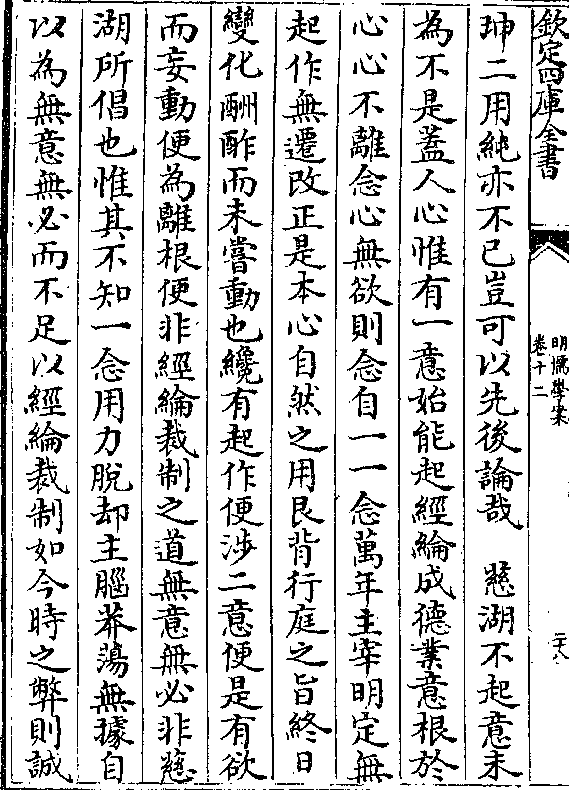 欽定四庫全書
明儒學案
卷十二
二十八
珅二用純亦不已豈可以先後論哉　慈湖不起意未
為不是蓋人心惟有一意始能起經綸成德業意根於
心心不離念心無欲則念自一一念萬年主宰明定無
起作無遷改正是本心自然之用艮背行庭之旨終日
變化酬酢而未嘗動也纔有起作便涉二意便是有欲
而妄動便為離根便非經綸裁制之道無意無必非慈
湖所倡也惟其不知一念用力脫却主腦莽蕩無據自
以為無意無必而不足以經綸裁制如今時之弊則誠